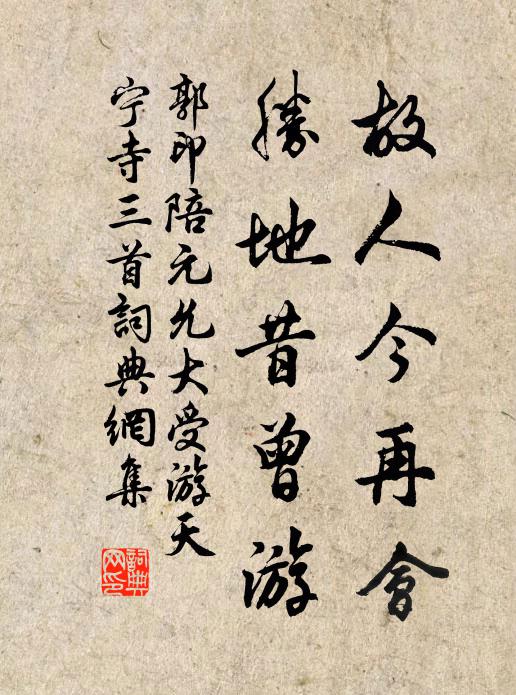 故人今再會
勝地昔曾游
郭印陪元允大受游天
宁寺三首詞典網集
詞典
网印